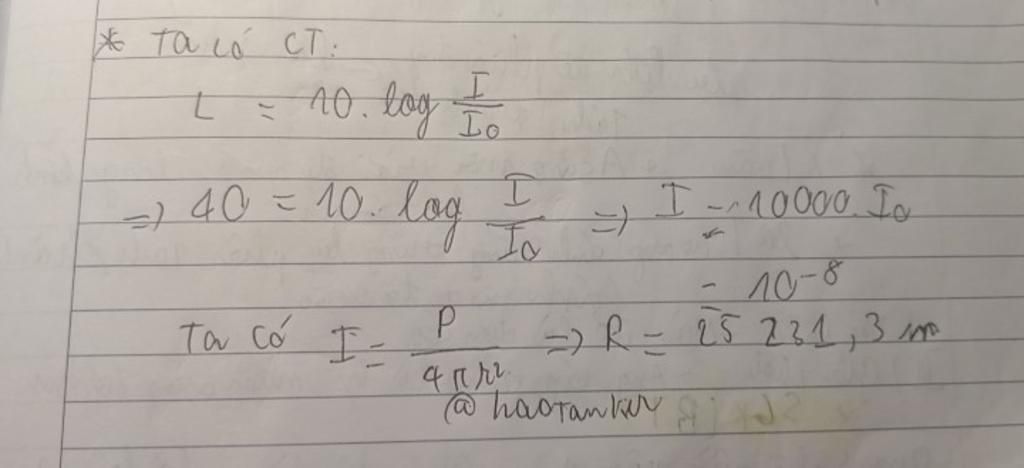 * Ta có CT:
L = 10. log I/I₀
=> 40 = 10. log I/I₀ => I = 10000.I₀
= 10⁻⁸
Ta có I = P/4πr² => R = 25 231,3 m
@haotanker